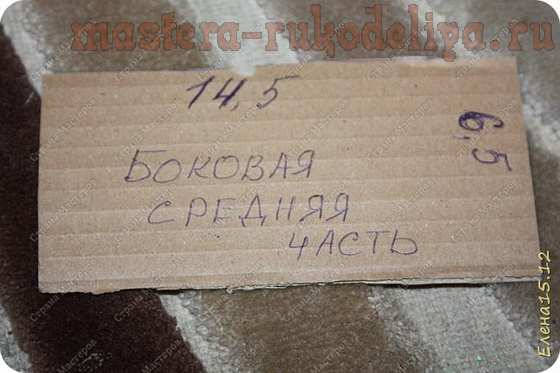 mastera-rukodeliya.ru
14,5
6,5
БОКОВАЯ
СРЕДНЯЯ
ЧАСТЬ
Елена15.12